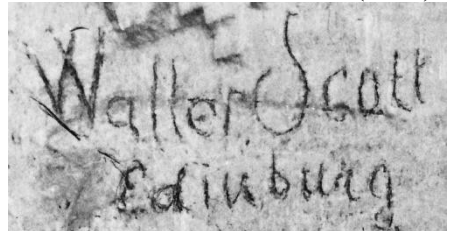 Walter Scott
Edinburg